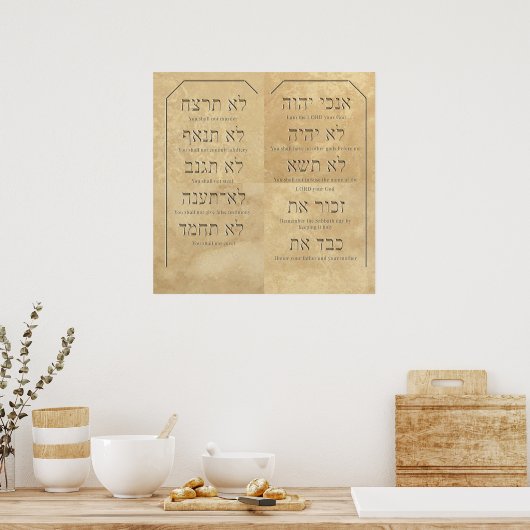 אנכי יהוה
I am the LORD your God
לא יהיה
You shall have no other gods before me
לא תשא
You shall not misuse the name of the
LORD your God
זכור את
Remember the Sabbath day by
keeping it holy
כבד את
Honor your father and your mother
לא תרצח
You shall not murder
לא תנאף
You shall not commit adultery
לא תגנב
You shall not steal
לא־תענה
You shall not give false testimony
לא תחמד
You shall not covet